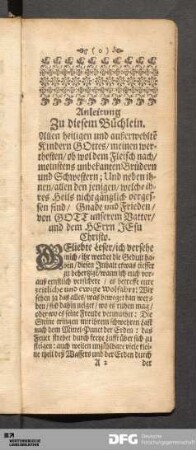 ( o )
Anleitung
Zu diesem Büchlein.
Allen heiligen und außerwehltē
Kindern GOttes/ meinen wer-
thesten/ ob wol dem Fleisch nach/
meistens unbekanten/Brüdern
und Schwestern; Und neben ih-
nen/ allen den jenigen/ welche ih-
res Heils nicht gäntzlich verges-
sen sind/ Gnade und Frieden/
von GOTT unserem Vatter/
und dem HErrn JEsu
Christo.
GEliebte Leser/ ich versehe
mich/ ihr werdet die Gedult ha-
ben/ diesen Inhalt etwas tieffer
zu behertzigen/ wann ich euch vor-
auß ernstlich versichere/ es betreffe eure
zeitliche und ewige Wolfahrt: Wir
sehen ja das alles/ was beweget
sey/ sich dahin neiget/ wo es ruhen mag/
oder wo es seine Freude vermuthet: Die
Steine tringen mit ihrem schweren Last
nach dem Mittel-Punct der Erden: das
Feuer strebet durch freye Lüffte über sich zu
steigen: auch weilen unzählbare viele kleine
theil deß Wassers und der Erden durch
A 2
der
DFG
Deutsche
Forschungsgemeinschaft